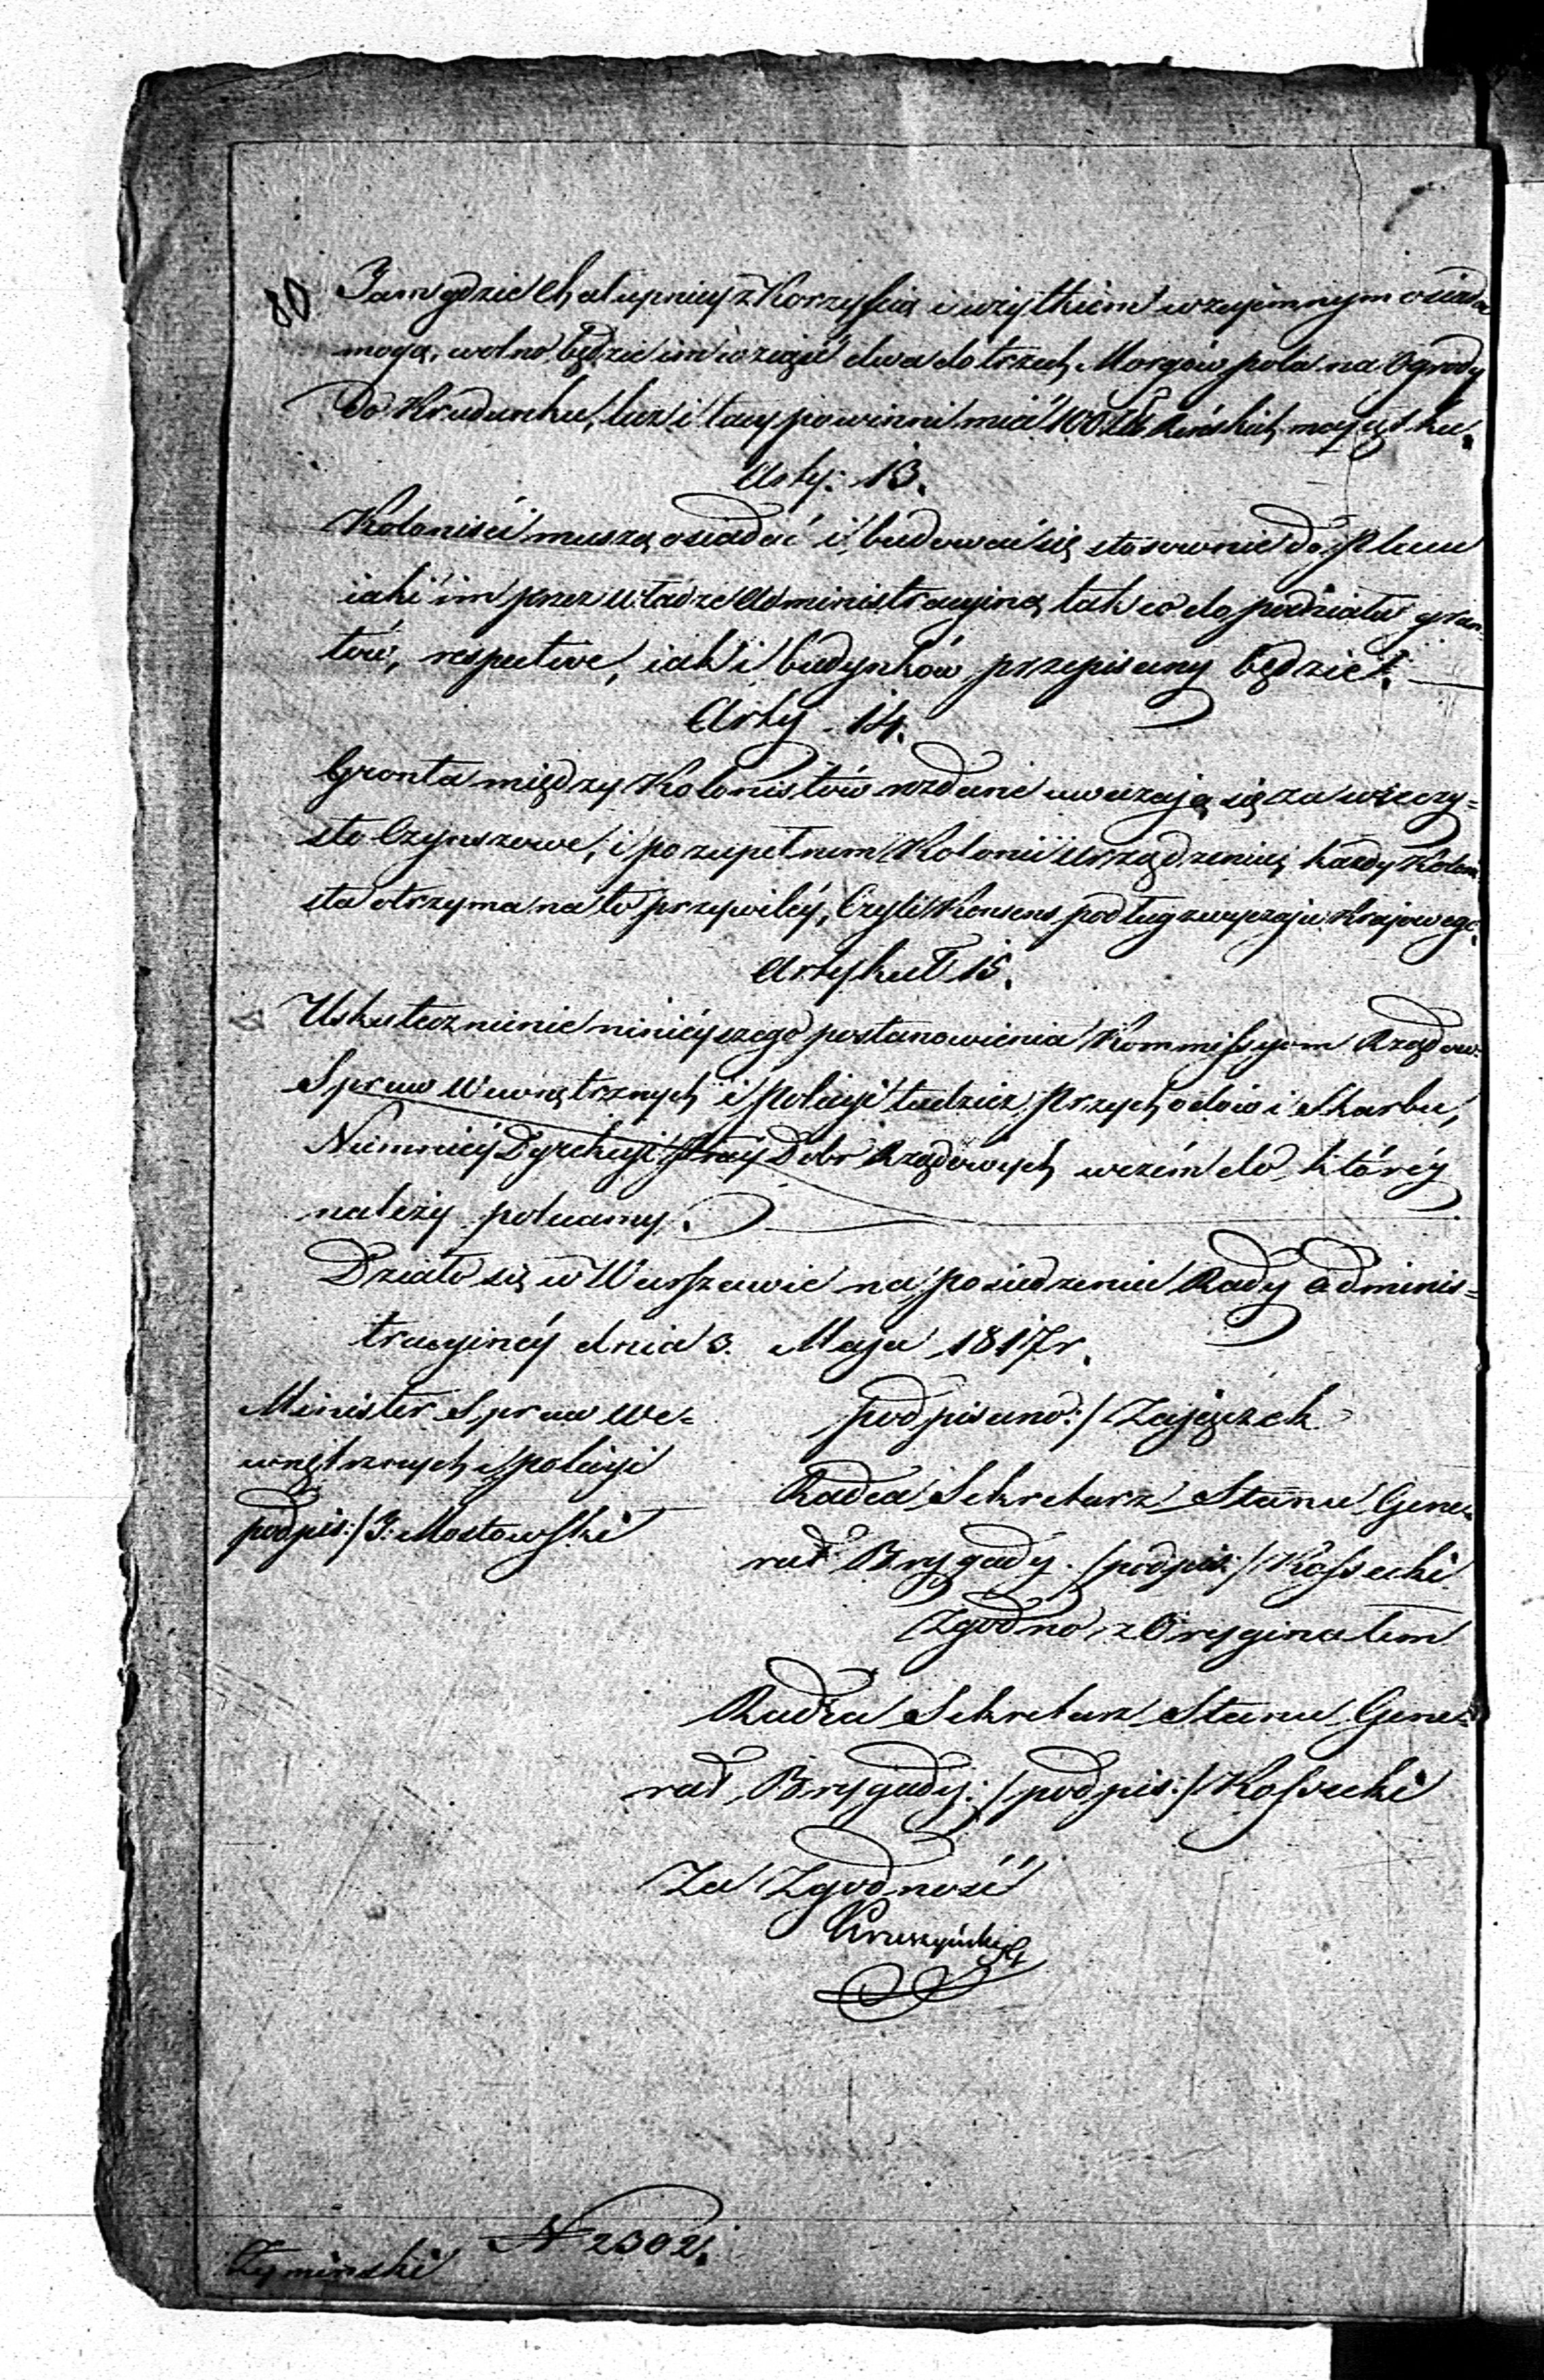 80 Tam gdzie Chałupnicy z Korzyścią i użytkiem wzajemnym osiadać
mogą, wolno będzie im wziąść dwa do trzech Morgów pola na Ogrody
Do Kradunku, lecz i tacy powinni mieć 100 Zł. Reńskich majątku.
Arty: 13.
Koloniści muszą osiadać i budować się stosownie do Planu
iaki im przez władze Administracyiną tak co do podziału grun-
tów, respective, iak i budynków przepisany będzie.
Arty 14.
Gronta między Kolonistów rozdane uważają się za wieczy=
sto Czynszowe, i po zupełnem Kolonii urządzeniu każdy Koloni
sta otrzyma na to przywiléy, Czyli Konsens podług zwyczaju Krajowego.
Artykuł 15.
Uskutecznienie ninieyszego postanowienia Kommissyom Rządow:
Spraw Wewnętrznych i Policyi tudzież Przychodów i Skarbu,
Niemniéy Dyrekcyi Dobr Rządowych wczém do któréy
należy polecamy.
Działo się w Warszawie na posiedzeniu Rady Adminis=
tracyinéy dnia 3. Maja 1817r.
Minister Spraw We=
wnętrznych i Policyi
podpis:/ J: Mostowski
podpisano:/ Zajączek
Radca Sekretarz Stanu Gene-
rał Brygady. /podpis:/ Kossecki
Zgodno z Oryginałem
Radca Sekretarz Stanu Gene=
rał Brygady: /podpis:/ Kossecki
Za Zgodność
Kruszyński
N 2302.